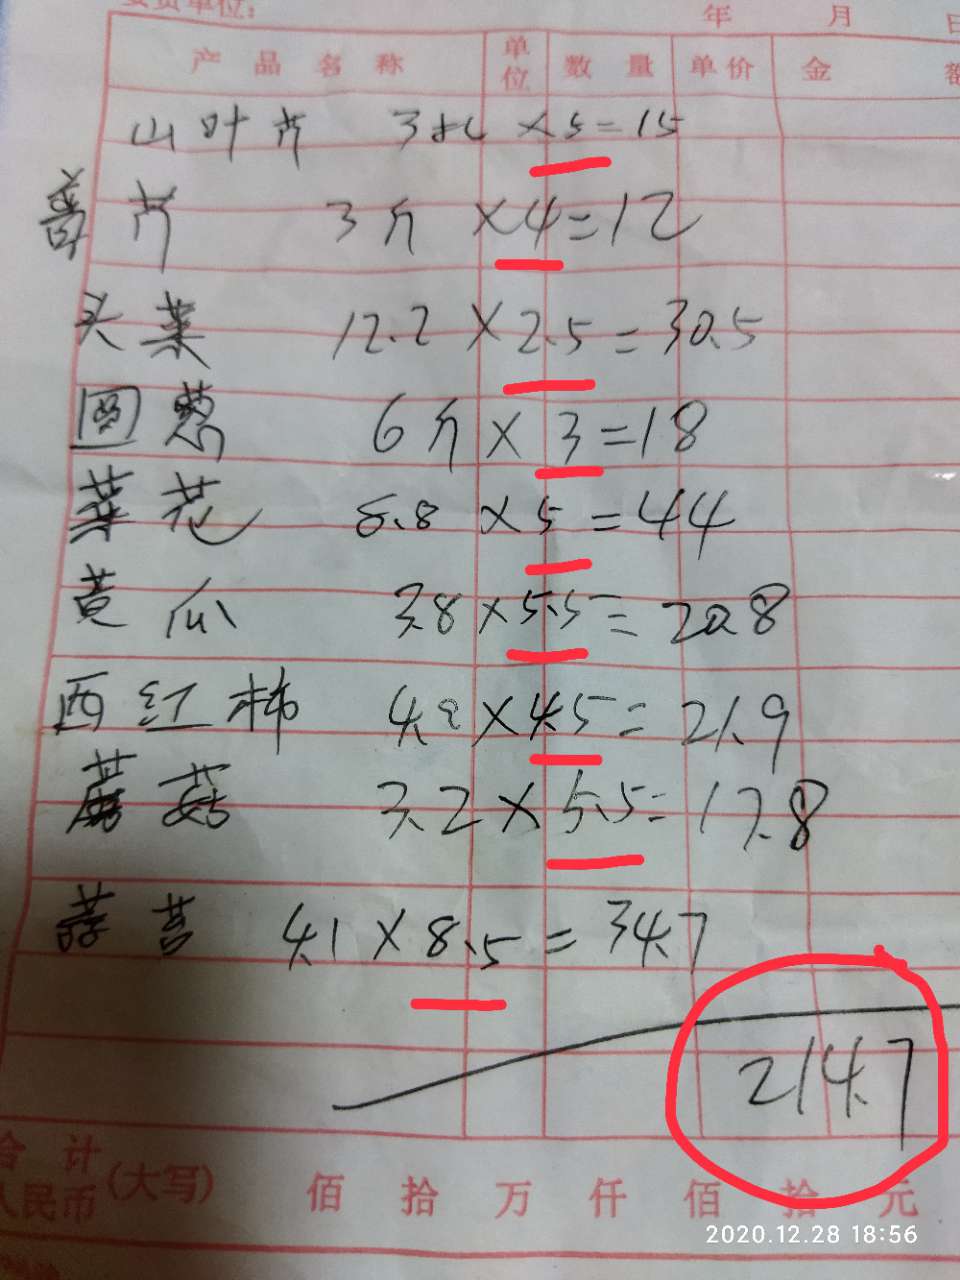 年 月 日
产品名称 单位 数量 单价 金 额
山叶芹 3 × 5 = 15
芹 3斤 × 4 = 12
头菜 12.2 × 2.5 = 30.5
圆葱 6斤 × 3 = 18
菜花 8.8 × 5 = 44
黄瓜 3.8 × 5.5 = 20.8
西红柿 4.8 × 4.5 = 21.9
蘑菇 3.2 × 5.5 = 17.8
4.1 × 8.5 = 34.7
214.7
合计
人民币 (大写) 佰 拾 万 仟 佰 拾 元
2020.12.28 18:56